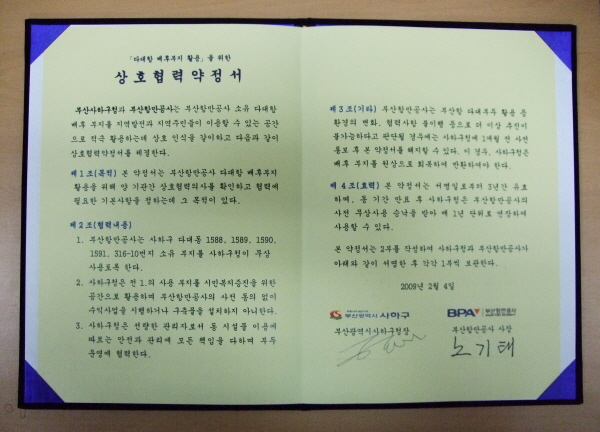 「다대항 배후부지 활용」을 위한
상호협력약정서
부산사하구청과 부산항만공사는 부산항만공사 소유 다대항
배후 부지를 지역발전과 지역주민들이 이용할 수 있는 공간
으로 적극 활용하는데 상호 인식을 같이하고 다음과 같이
상호협력약정서를 체결한다.
제1조(목적) 본 약정서는 부산항만공사 다대항 배후부지
활용을 위해 양 기관간 상호협력의사를 확인하고 협력에
필요한 기본사항을 정하는데 그 목적이 있다.
제2조(협력내용)
1. 부산항만공사는 사하구 다대동 1588, 1589, 1590,
1591, 316-10번지 소유 부지를 사하구청이 무상
사용토록 한다.
2. 사하구청은 전 1.의 사용 부지를 시민복지증진을 위한
공간으로 활용하며 부산항만공사의 사전 동의 없이
수익사업을 시행하거나 구축물을 설치하지 아니한다.
3. 사하구청은 선량한 관리자로서 동 시설물 이용에
따르는 안전과 관리에 모든 책임을 다하며 부두
운영에 협력한다.
제3조(기타) 부산항만공사는 부산항 다대부두 활용 등
환경의 변화, 협력사항 불이행 등으로 더 이상 추진이
불가능하다고 판단될 경우에는 사하구청에 1개월 전 사전
통보 후 본 약정서를 해지할 수 있다. 이 경우, 사하구청은
배후 부지를 원상으로 회복하여 반환하여야 한다.
제4조(효력) 본 약정서는 서명일로부터 3년간 유효
하며, 동 기간 만료 후 사하구청은 부산항만공사의
사전 무상사용 승낙을 받아 매 1년 단위로 연장하여
사용할 수 있다.
본 약정서는 2부를 작성하여 사하구청과 부산항만공사가
아래와 같이 서명한 후 각각 1부씩 보관한다.
2009년 2월 4일
부산광역시 사하구
부산광역시사하구청장
BPA 부산항만공사
부산항만공사 사장
노기태